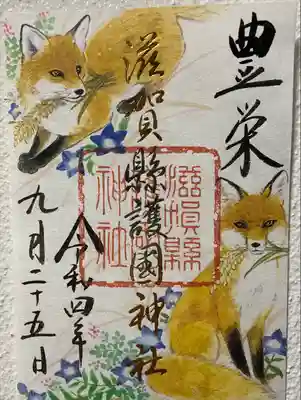 豊栄
滋賀縣護國神社
令和四年
九月二十五日
滋賀縣
護國
神社